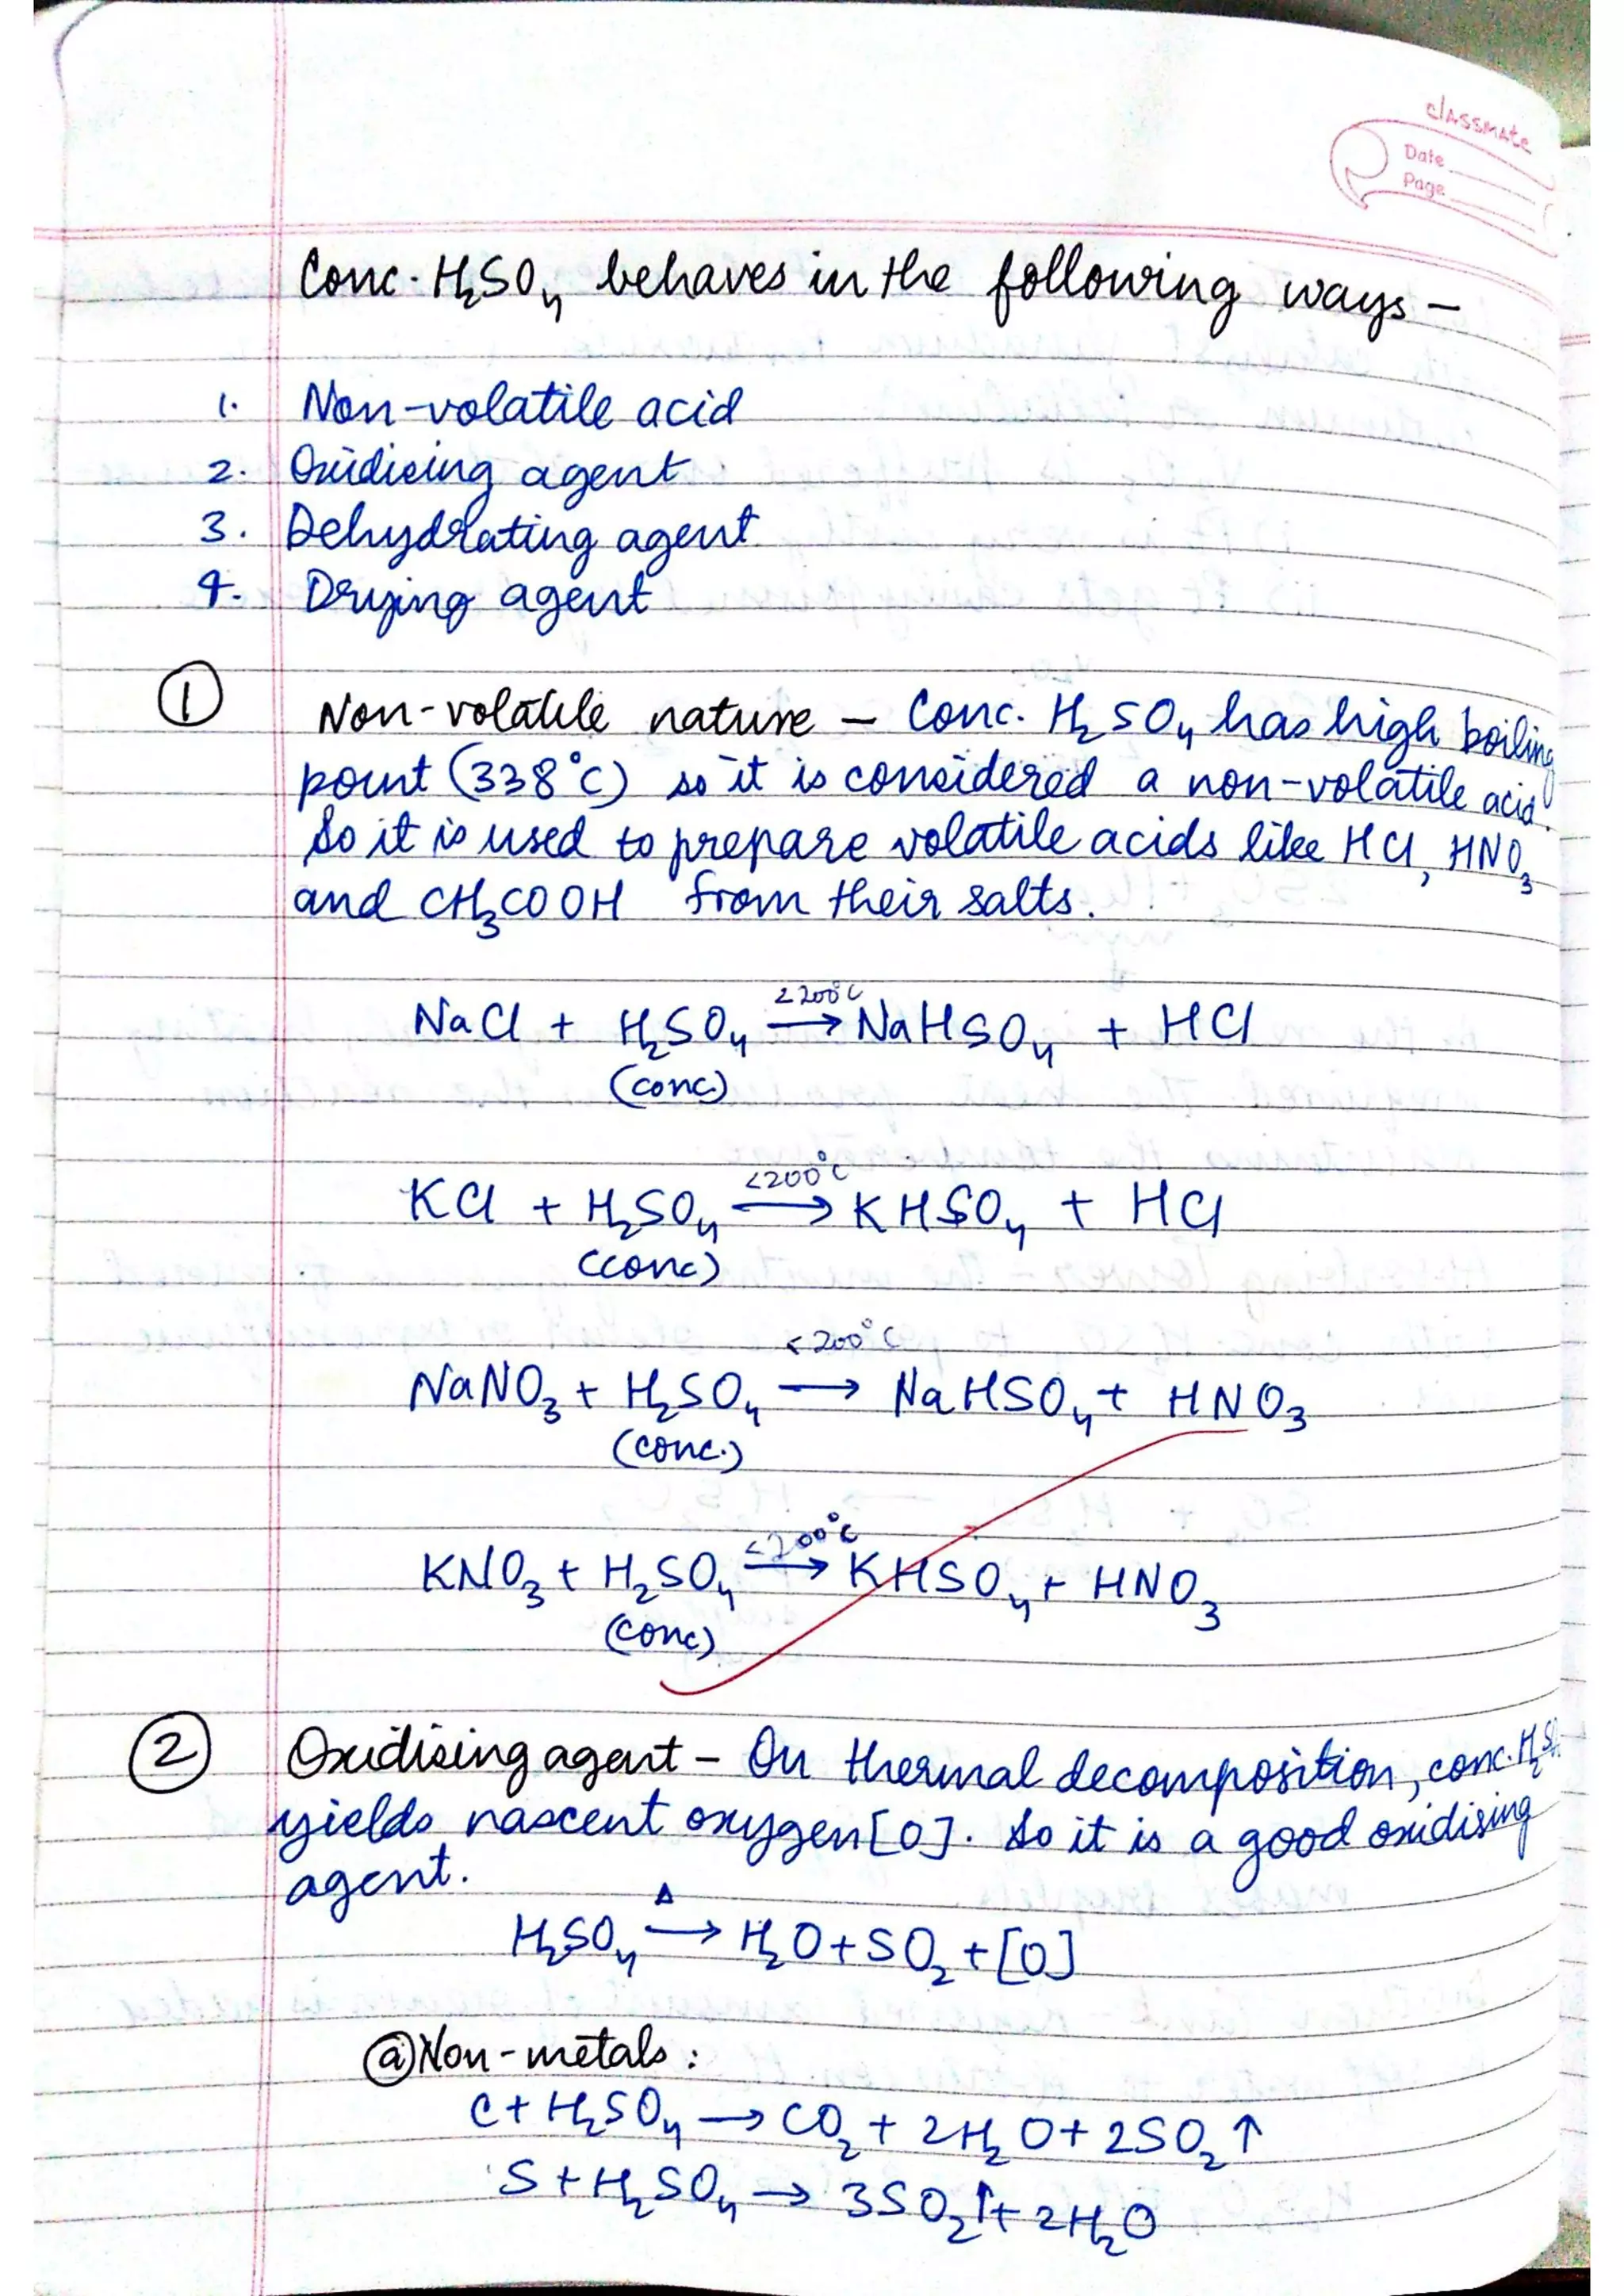 classmate
Date
Page
Conc. H₂SO₄ behaves in the following ways –
1. Non-volatile acid
2. Oxidising agent
3. Dehydrating agent
4. Drying agent
① Non-volatile nature – Conc. H₂SO₄ has high boiling
point (338°C) so it is considered a non-volatile acid.
So it is used to prepare volatile acids like HCl, HNO₃
and CH₃COOH from their salts.
<200°C
NaCl + H₂SO₄ → NaHSO₄ + HCl
(conc)
<200°C
KCl + H₂SO₄ → KHSO₄ + HCl
(conc)
<200°C
NaNO₃ + H₂SO₄ → NaHSO₄ + HNO₃
(conc.)
<200°C
KNO₃ + H₂SO₄ → KHSO₄ + HNO₃
(conc)
② Oxidising agent – On thermal decomposition, conc. H₂SO₄
yields nascent oxygen [O]. So it is a good oxidising
agent.
Δ
H₂SO₄ → H₂O + SO₂ + [O]
ⓐ Non-metals :
C + H₂SO₄ → CO₂ + 2H₂O + 2SO₂ ↑
S + H₂SO₄ → 3SO₂↑ + 2H₂O